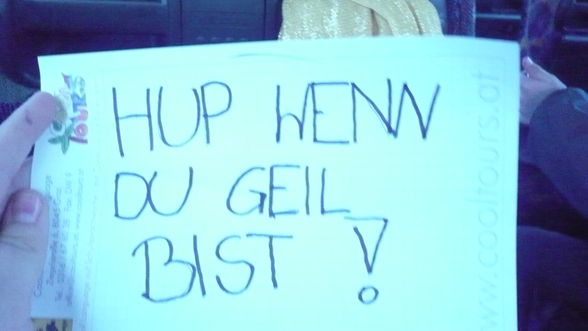 HUP WENN
DU GEIL
BIST !
Cool
TOURS
www.cooltours.at